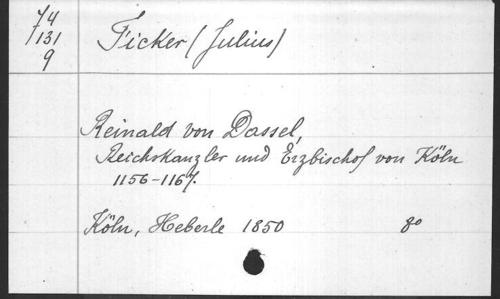 74
131
9
Ficker (Julius)
Reinald von Dassel,
Reichskanzler und Erzbischof von Köln
1156-1167.
Köln, Heberle 1850 8°